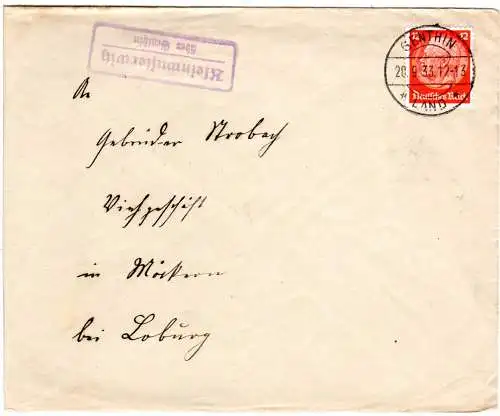 Kleinwusterwitz
über Genthin
GENTHIN
20.9.33.12-13
* LAND *
12
Deutsches Reich
An
Gebrüder Strobach
Viehgeschäft
in Möckern
bei Loburg